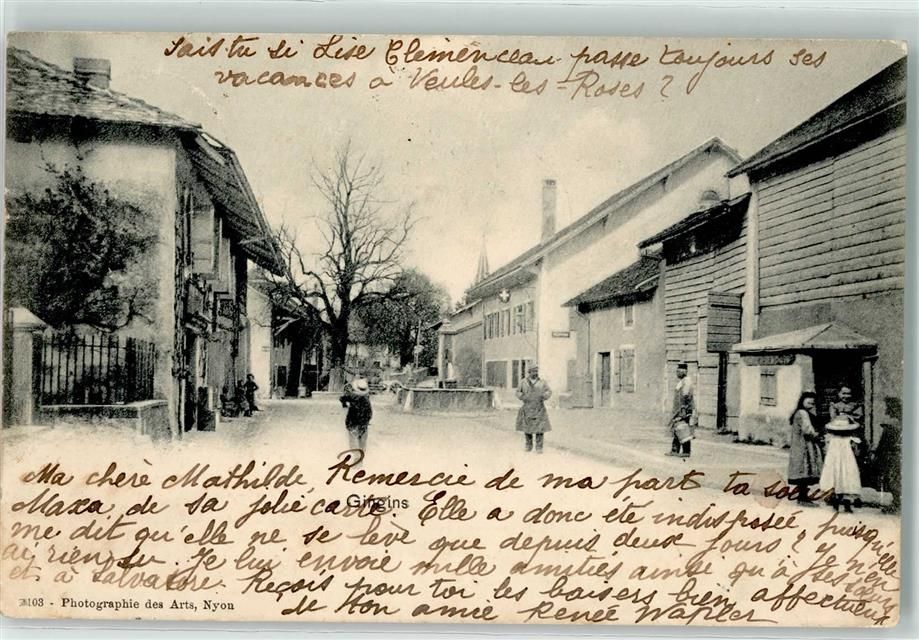 Sais tu si Lise Clemenceau passe toujours ses
vacances à Veules-les-Roses ?
Ma chère Mathilde, Remercie de ma part ta soeur
Maxa, de sa jolie carte. Elle a donc été indisposée puisqu'elle
Gingins
me dit qu'elle ne se lève que depuis deux jours ? Je n'en
ai rien su. Je lui envoie mille amitiés ainsi qu'à ses soeurs
et à Salvatore. Reçois pour toi les baisers bien affectueux
de ton amie Renée Wapler
103 - Photographie des Arts, Nyon